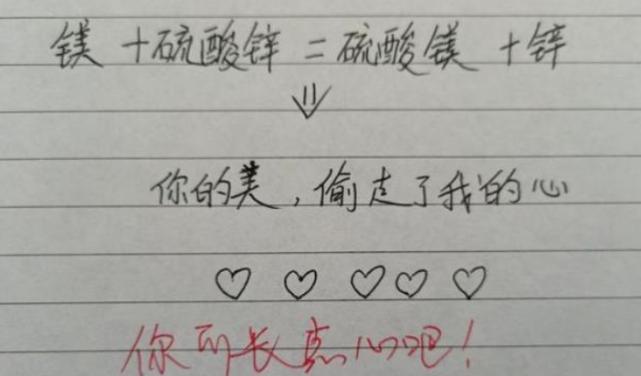 镁+硫酸锌=硫酸镁+锌
你的美，偷走了我的心
你可长点心吧！